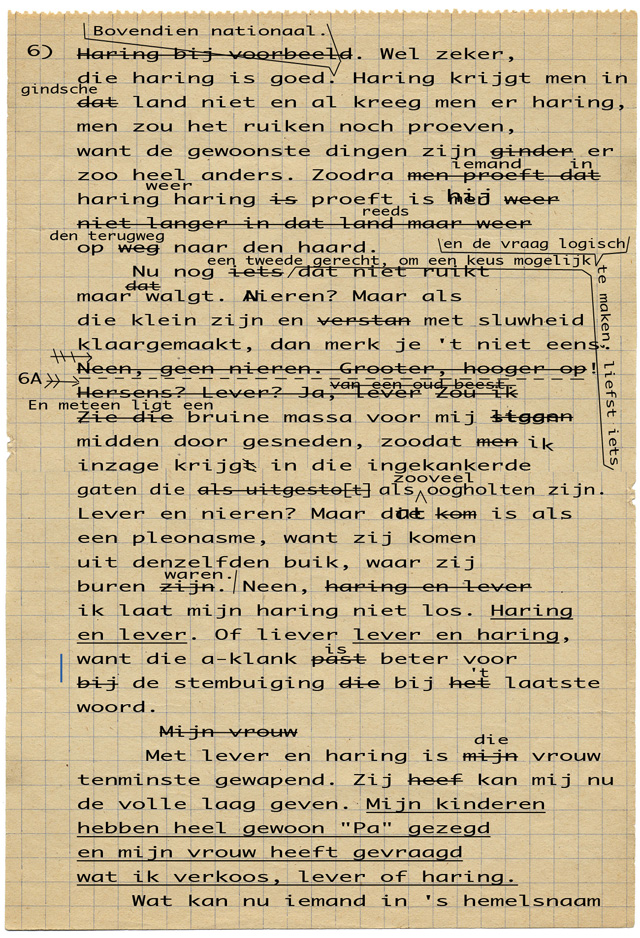 Bovendien nationaal.
6) Haring bij voorbeeld. Wel zeker,
die haring is goed. Haring krijgt men in
gindsche
dat land niet en al kreeg men er haring,
men zou het ruiken noch proeven,
want de gewoonste dingen zijn ginder er
iemand in
zoo heel anders. Zoodra men proeft dat
weer
haring haring is proeft is men hij weer
reeds
niet langer in dat land maar weer
den terugweg
op weg naar den haard.
en de vraag logisch
een tweede gerecht, om een keus mogelijk
te maken, liefst iets
Nu nog iets dat niet ruikt
dat
maar walgt. Nieren? Maar als
die klein zijn en verstan met sluwheid
klaargemaakt, dan merk je 't niet eens.
Neen, geen nieren. Grooter, hooger op!
6A
van een oud beest.
Hersens? Lever? Ja, lever Zou ik
En meteen ligt een
Zie die bruine massa voor mij liggen
midden door gesneden, zoodat men ik
inzage krijgt in die ingekankerde
zooveel
gaten die als uitgesto[t] als oogholten zijn.
Lever en nieren? Maar dat kom is als
een pleonasme, want zij komen
uit denzelfden buik, waar zij
waren.
buren zijn. Neen, haring en lever
ik laat mijn haring niet los. Haring
en lever. Of liever lever en haring,
is
want die a-klank past beter voor
't
bij de stembuiging die bij het laatste
woord.
Mijn vrouw
die
Met lever en haring is mijn vrouw
tenminste gewapend. Zij heef kan mij nu
de volle laag geven. Mijn kinderen
hebben heel gewoon "Pa" gezegd
en mijn vrouw heeft gevraagd
wat ik verkoos, lever of haring.
Wat kan nu iemand in 's hemelsnaam